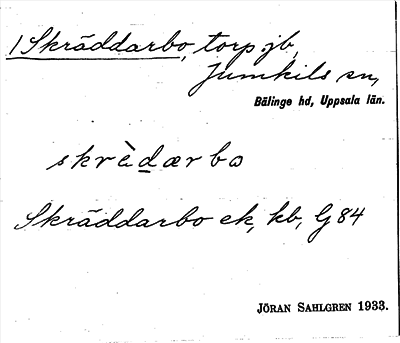 1 Skräddarbo, torp jb,
Jumkils sn,
Bälinge hd, Uppsala län.
skrὲd̲ærbω
Skräddarbo ek, kb, G 84
JÖRAN SAHLGREN 1933.